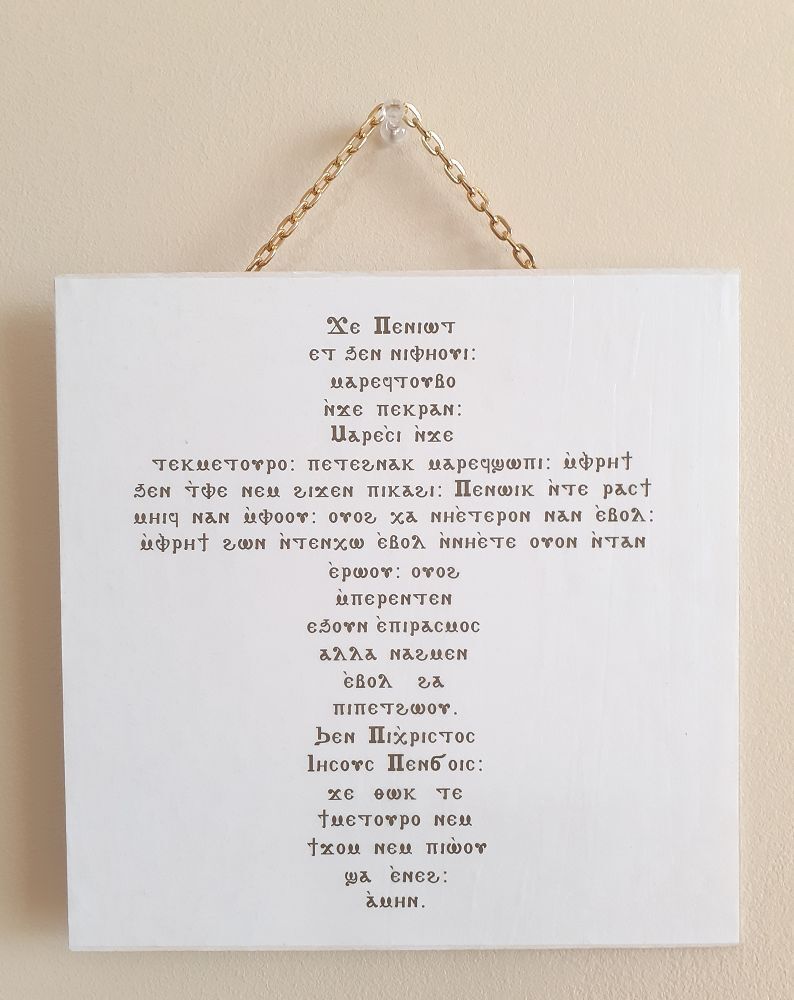 Ϫⲉ Ⲡⲉⲛⲓⲱⲧ
ⲉⲧ ϧⲉⲛ ⲛⲓⲫⲏⲟⲩⲓ:
ⲙⲁⲣⲉϥⲧⲟⲩⲃⲟ
ⲛ̀ϫⲉ ⲡⲉⲕⲣⲁⲛ:
Ⲙⲁⲣⲉⲥ̀ⲓ ⲛ̀ϫⲉ
ⲧⲉⲕⲙⲉⲧⲟⲩⲣⲟ: ⲡⲉⲧⲉϩⲛⲁⲕ ⲙⲁⲣⲉϥϣⲱⲡⲓ: ⲙ̀ⲫⲣⲏϯ
ϧⲉⲛ ⲧ̀ⲫⲉ ⲛⲉⲙ ϩⲓϫⲉⲛ ⲡⲓⲕⲁϩⲓ: Ⲡⲉⲛⲱⲓⲕ ⲛ̀ⲧⲉ ⲣⲁⲥϯ
ⲙⲏⲓϥ ⲛⲁⲛ ⲙ̀ⲫⲟⲟⲩ: ⲟⲩⲟϩ ⲭⲁ ⲛⲏⲉ̀ⲧⲉⲣⲟⲛ ⲛⲁⲛ ⲉ̀ⲃⲟⲗ:
ⲙ̀ⲫⲣⲏϯ ϩⲱⲛ ⲛ̀ⲧⲉⲛⲭⲱ ⲉ̀ⲃⲟⲗ ⲛ̀ⲛⲏⲉ̀ⲧⲉ ⲟⲩⲟⲛ ⲛ̀ⲧⲁⲛ
ⲉ̀ⲣⲱⲟⲩ: ⲟⲩⲟϩ
ⲙ̀ⲡⲉⲣⲉⲛⲧⲉⲛ
ⲉϧⲟⲩⲛ ⲉ̀ⲡⲓⲣⲁⲥⲙⲟⲥ
ⲁⲗⲗⲁ ⲛⲁϩⲙⲉⲛ
ⲉ̀ⲃⲟⲗ ϩⲁ
ⲡⲓⲡⲉⲧϩⲱⲟⲩ.
Ϧⲉⲛ Ⲡⲓⲭ̀ⲣⲓⲥⲧⲟⲥ
Ⲓⲏⲥⲟⲩⲥ Ⲡⲉⲛϭⲟⲓⲥ:
ϫⲉ ⲑⲱⲕ ⲧⲉ
ϯⲙⲉⲧⲟⲩⲣⲟ ⲛⲉⲙ
ϯϫⲟⲙ ⲛⲉⲙ ⲡⲓⲱ̀ⲟⲩ
ϣⲁ ⲉ̀ⲛⲉϩ:
ⲁ̀ⲙⲏⲛ.